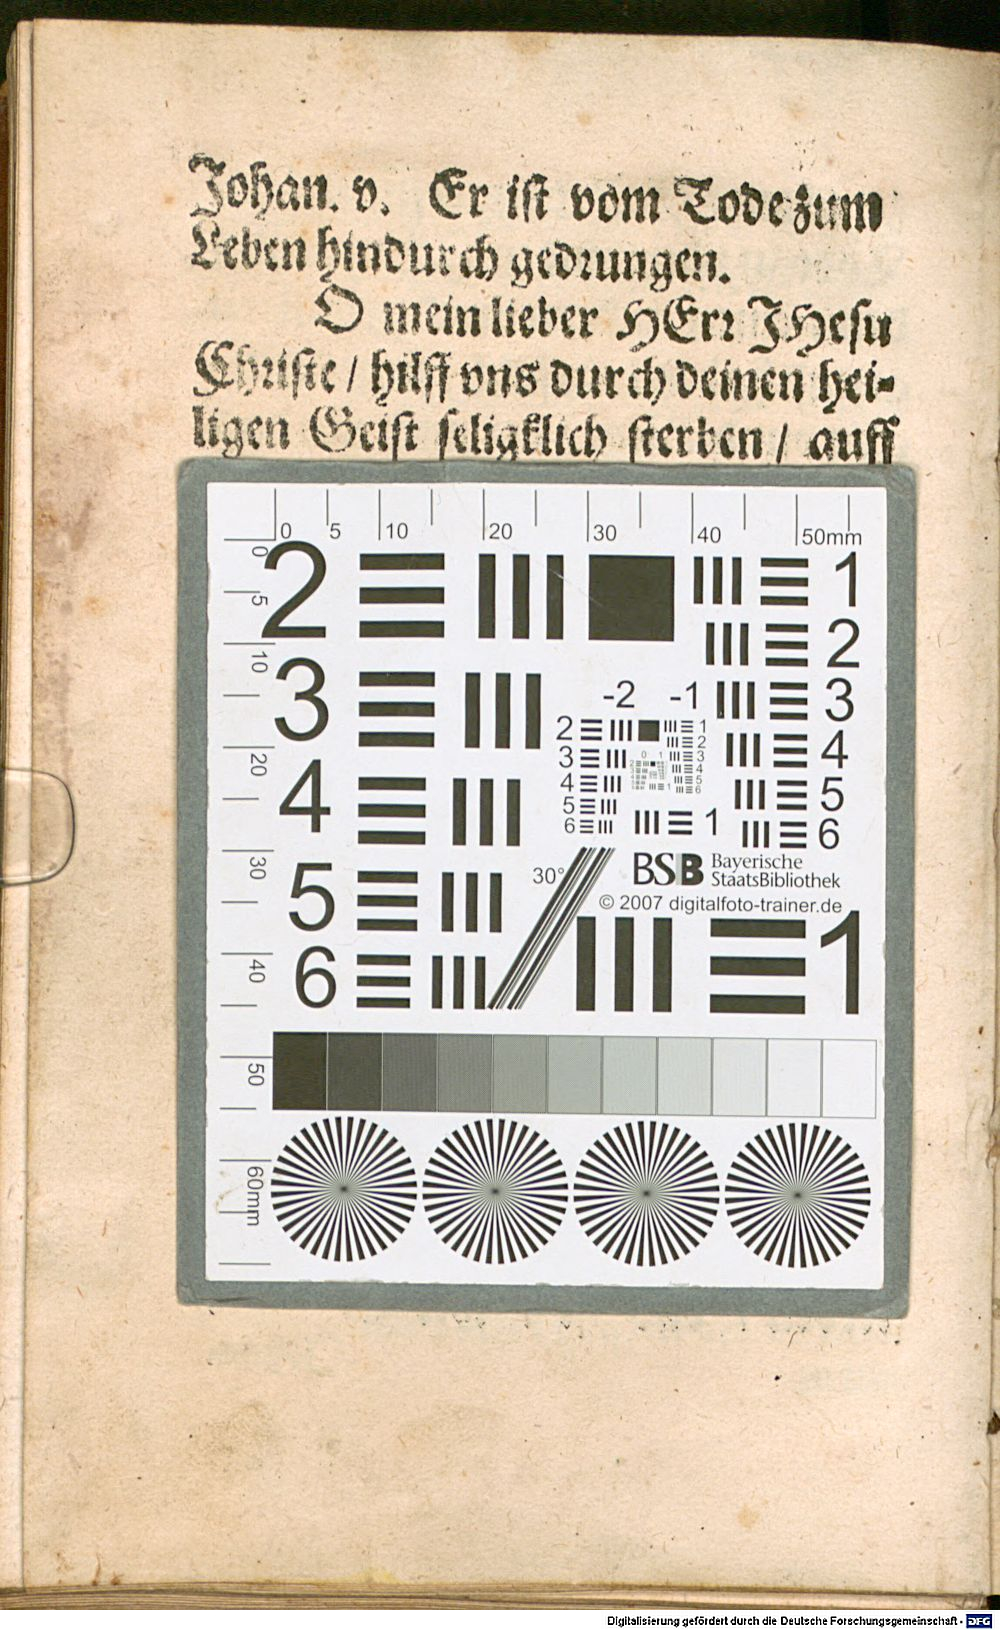 Johan. v. Er ist vom Tode zum
Leben hindurch gedrungen.
O mein lieber HErr JHesu
Christe / hilff vns durch deinen hei-
ligen Geist seligklich sterben / auff
0 5 10 20 30 40 50mm
0 5 10 20 30 40 50 60mm
2 1
2
3 -2 -1 3
2 1
2
3 3
4 4
4 4
5 5
5 6
6 1 6
0 1
1
30°
BSB Bayerische
StaatsBibliothek
© 2007 digitalfoto-trainer.de
5
6 1
Digitalisierung gefördert durch die Deutsche Forschungsgemeinschaft - DFG